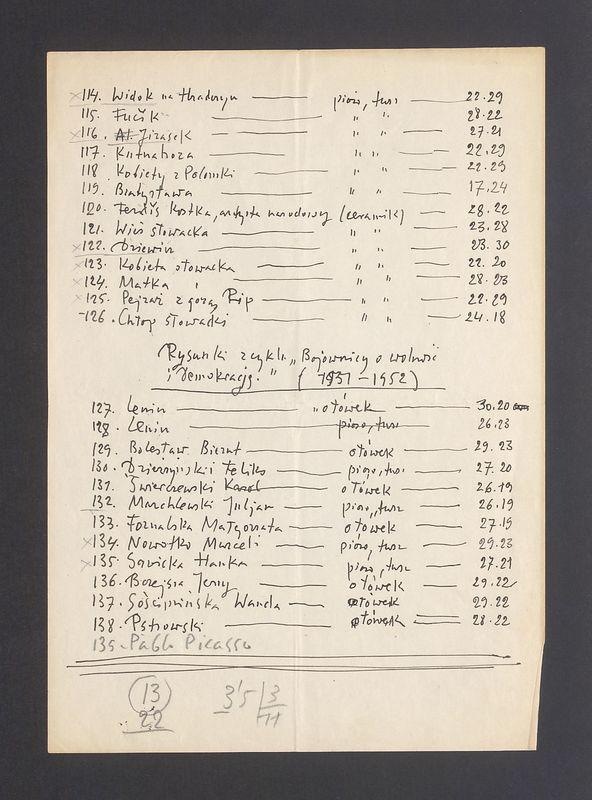 114. Widok na Hradczyn — pióro, tusz — 22.29
115. Fučik — " " — 28.22
116. Al. Jirasek — " " — 27.21
117. Kutnahora — " " — 22.29
118 Kobiety z Polomki — " " — 22.29
119. Bratysława — " " — 17.24
120. Ferdiš Kostka, artysta narodowy (ceramik) — 28.22
121. Wieś słowacka — " " — 23.28
122. Dziewin — " " — 23.30
123. Kobieta słowacka — " " — 22.20
124. Matka " — " " — 28.23
125. Pejzaż z górą Rip — " " — 22.29
126. Chłop słowacki — " " — 24.18
Rysunki z cyklu „Bojownicy o wolność
i demokrację." (1931-1952)
127. Lenin — ołówek — 30.20
128. Lenin — pióro, tusz — 26.23
129. Bolesław Bierut — ołówek — 29.23
130. Dzierżyński Feliks — pióro, tusz — 27.20
131. Świerczewski Karol — ołówek — 26.19
132. Marchlewski Juljan — pióro, tusz — 26.19
133. Fornalska Małgorzata — ołówek — 27.19
134. Nowotko Marceli — pióro, tusz — 29.23
135. Sawicka Hanka — pióro, tusz — 27.21
136. Borejsza Jerzy — ołówek — 29.22
137. Gościmińska Wanda — ołówek — 29.22
138. Pstrowski — ołówek — 28.22
139. Pablo Picasso
13 35 | 3
22 11